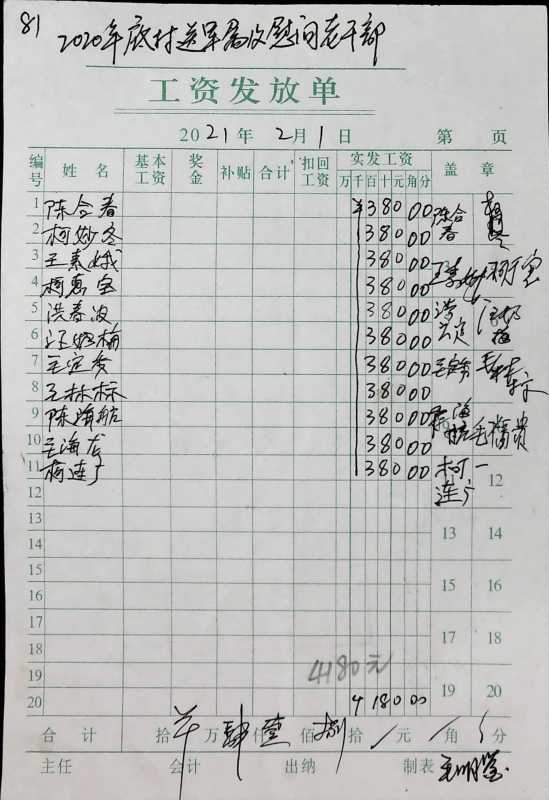 81
2020年底村送军属及慰问老干部
工资发放单
2021年 2月1日 第 页
编号 姓名 基本工资 奖金 补贴 合计 扣回工资 实发工资 盖章
万 千 百 十 元 角 分
1 陈合春 ¥380 00 陈合春
2 柯妙冬 380 00
3 王素娥 380 00 王素娥
4 柯惠宝 380 00
5 洪春波 380 00
6 汪娇梅 380 00
7 王定芳 380 00 王定芳
8 王林标 380 00
9 陈海航 380 00 陈海航
10 王海龙 380 00
11 柯连广 380 00 柯连广
12 12
13 13 14
14
15 15 16
16
17 17 18
18
19 4180元 19 20
20 4180 00
合计 拾 万 肆 仟 壹 佰 捌 拾 元 角 分
主任 会计 出纳 制表